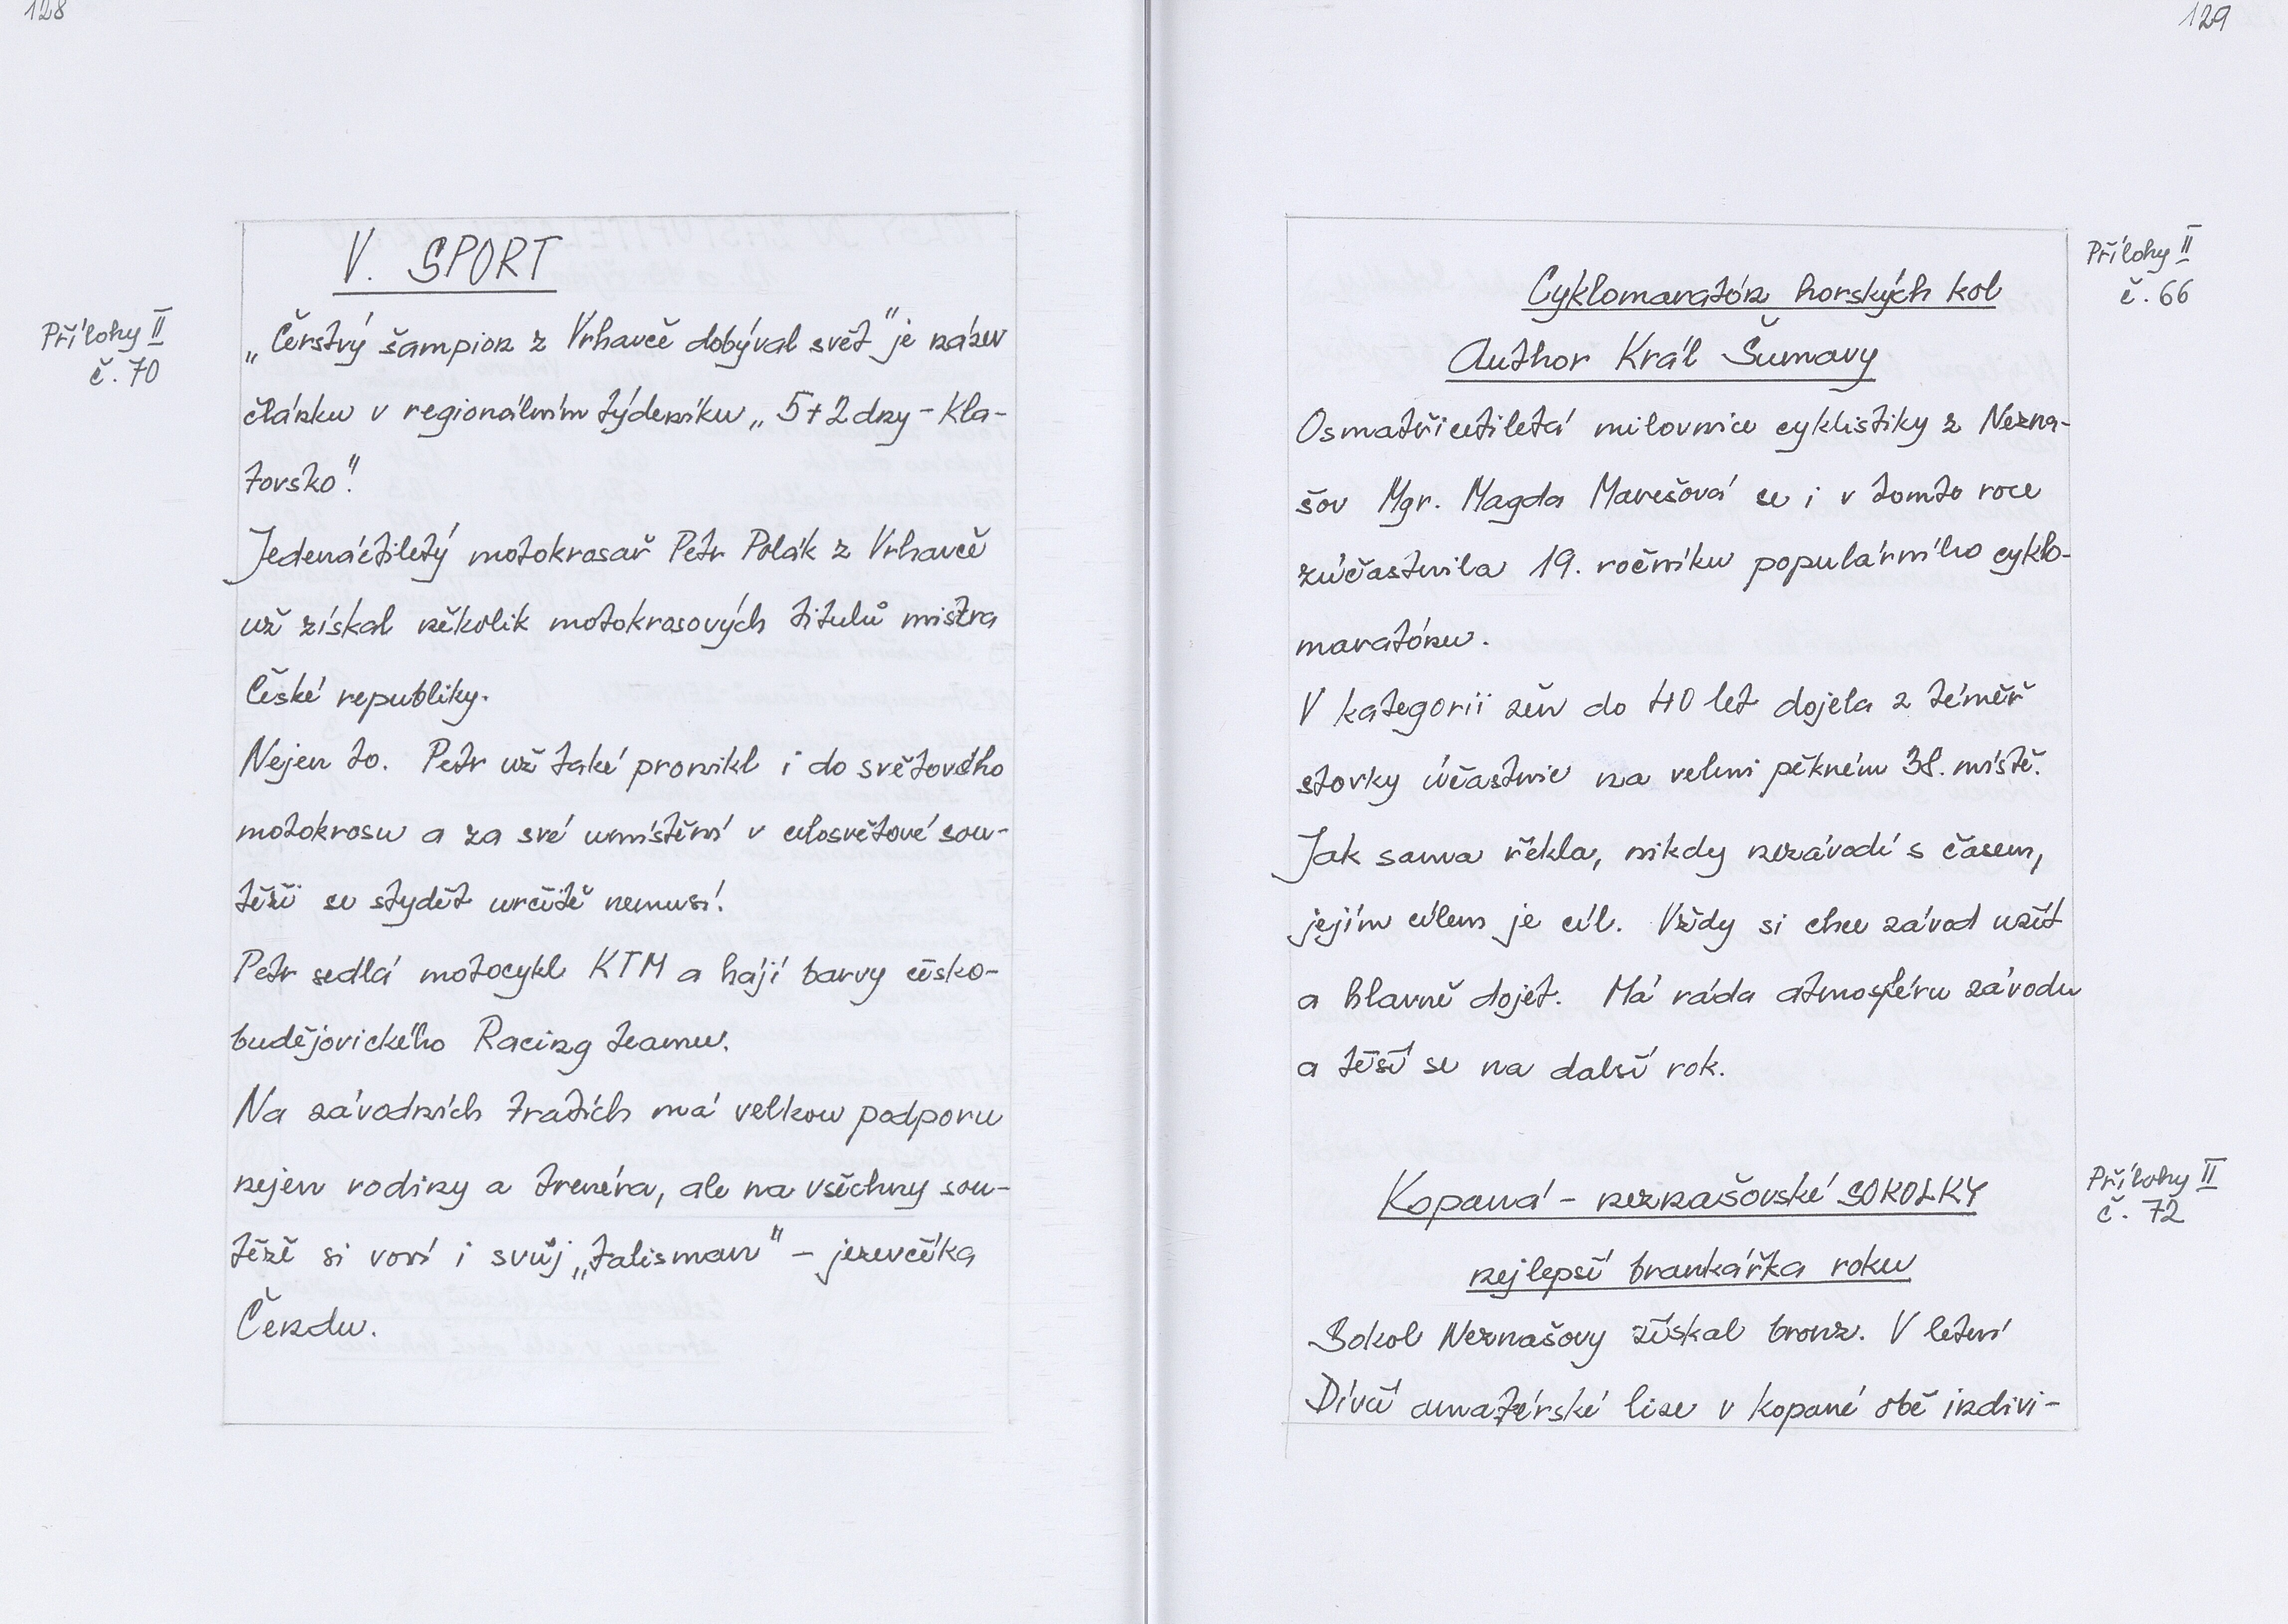 128
V. SPORT
Přílohy II
č. 70
„Čerstvý šampion z Vrhavče dobýval svět" je název
článku v regionálním týdeníku „5+2 dny - Kla-
tovsko".
Jedenáctiletý motokrosař Petr Polák z Vrhavče
už získal několik motokrosových titulů mistra
České republiky.
Nejen to. Petr už také pronikl i do světového
motokrosu a za své umístění v celosvětové sou-
těži se stydět určitě nemusí.
Petr sedlá motocykl KTM a hájí barvy česko-
budějovického Racing teamu.
Na závodních tratích má velkou podporu
nejen rodiny a trenéra, ale na všechny sou-
těže si vozí i svůj „talisman" - jezevčíka
Čendu.
129
Přílohy II
č. 66
Cyklomaratón horských kol
Author Král Šumavy
Osmatřicetiletá milovnice cyklistiky z Nezna-
šov Mgr. Magda Marešová se i v tomto roce
zúčastnila 19. ročníku populárního cyklo-
maratónu.
V kategorii žen do 40 let dojela z téměř
stovky účastnic na velmi pěkném 38. místě.
Jak sama řekla, nikdy nezávodí s časem,
jejím cílem je cíl. Vždy si chce závod užít
a hlavně dojet. Má ráda atmosféru závodu
a těší se na další rok.
Přílohy II
č. 72
Kopaná - neznašovské SOKOLKY
nejlepší brankářka roku
Sokol Neznašovy získal bronz. V letní
Dívčí amatérské lize v kopané obě indivi-